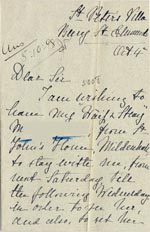 St Peters Villa
Bury St Edmunds
Oct 4
Ans
5.10.98
Dear Sir
I am writing to
learn Miss
M from St
John's Home, Mildenhall
to stay with me, from
next Saturday till
the following Wednesday
in order to see her,
and also, to let her